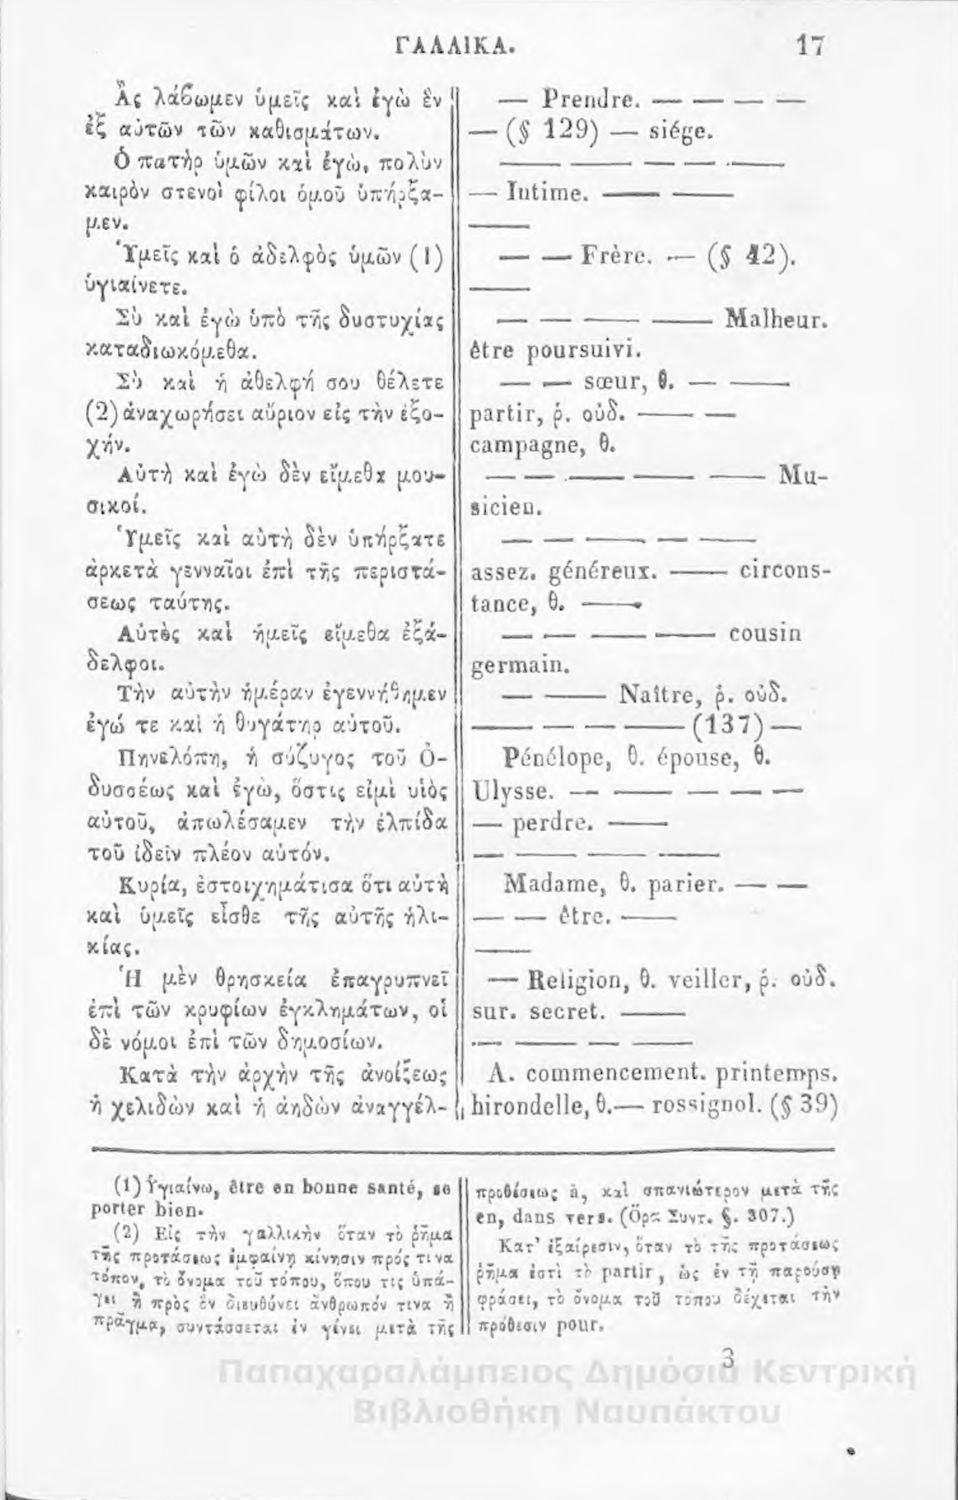 ΓΑΛΛΙΚΑ. 17
Ἂς λάβωμεν ὑμεῖς καὶ ἐγὼ ἓν
ἐξ αὐτῶν τῶν καθισμάτων.
Ὁ πατὴρ ὑμῶν καὶ ἐγὼ, πολὺν
καιρὸν στενοὶ φίλοι ὁμοῦ ὑπήρξα-
μεν.
Ὑμεῖς καὶ ὁ ἀδελφὸς ὑμῶν (1)
ὑγιαίνετε.
Σὺ καὶ ἐγὼ ὑπὸ τῆς δυστυχίας
καταδιωκόμεθα.
Σὺ καὶ ἡ ἀθελφή σου θέλετε
(2) ἀναχωρήσει αὔριον εἰς τὴν ἐξο-
χήν.
Αὐτὴ καὶ ἐγὼ δὲν εἴμεθα μου-
σικοί.
Ὑμεῖς καὶ αὐτὴ δὲν ὑπήρξατε
ἀρκετὰ γενναῖοι ἐπὶ τῆς περιστά-
σεως ταύτης.
Αὐτὸς καὶ ἡμεῖς εἴμεθα ἐξά-
δελφοι.
Τὴν αὐτὴν ἡμέραν ἐγεννήθημεν
ἐγώ τε καὶ ἡ θυγάτηρ αὐτοῦ.
Πηνελόπη, ἡ σύζυγος τοῦ Ὀ-
δυσσέως καὶ ἐγὼ, ὅστις εἰμὶ υἱὸς
αὐτοῦ, ἀπωλέσαμεν τὴν ἐλπίδα
τοῦ ἰδεῖν πλέον αὐτόν.
Κυρία, ἐστοιχημάτισα ὅτι αὐτὴ
καὶ ὑμεῖς εἶσθε τῆς αὐτῆς ἡλι-
κίας.
Ἡ μὲν θρησκεία ἐπαγρυπνεῖ
ἐπὶ τῶν κρυφίων ἐγκλημάτων, οἱ
δὲ νόμοι ἐπὶ τῶν δημοσίων.
Κατὰ τὴν ἀρχὴν τῆς ἀνοίξεως
ἡ χελιδὼν καὶ ἡ ἀηδὼν ἀναγγέλ-
— Prendre. — — — —
— (§ 129) — siége.
— — — — —
— Intime. — —
—
— — Frère. — (§ 42).
—
— — — — Malheur.
être poursuivi.
— — sœur, θ. — —
partir, ῥ. οὐδ. — —
campagne, θ.
— — — — — Mu-
sicien.
— — — — —
assez. généreux. — circons-
tance, θ. —
— — — — cousin
germain.
— — Naître, ῥ. οὐδ.
— — — — (137) —
Pénélope, θ. épouse, θ.
Ulysse. — — — — —
— perdre. —
— — — — —
Madame, θ. parier. — —
— — être. —
—
— Religion, θ. veiller, ῥ. οὐδ.
sur. secret. —
— — — —
A. commencement. printemps.
hirondelle, θ. — rossignol. (§ 39)
(1) Ὑγιαίνω, être en bonne santé, se
porter bien.
(2) Εἰς τὴν γαλλικὴν ὅταν τὸ ῥῆμα
τῆς προτάσεως ἐμφαίνῃ κίνησιν πρός τινα
τόπον, τὸ ὄνομα τοῦ τόπου, ὅπου τις ὑπά-
γει ἢ πρὸς ὃν διευθύνει ἄνθρωπόν τινα ἢ
πρᾶγμα, συντάσσεται ἐν γένει μετὰ τῆς
προθέσεως à, καὶ σπανιώτερον μετὰ τῆς
en, dans vers. (Ὅρα Συντ. §. 307.)
Κατ' ἐξαίρεσιν, ὅταν τὸ τῆς προτάσεως
ῥῆμα ἐστὶ τὸ partir, ὡς ἐν τῇ παρούσῃ
φράσει, τὸ ὄνομα τοῦ τόπου δέχεται τὴν
πρόθεσιν pour.
3
Παπαχαραλάμπειος Δημόσια Κεντρική
Βιβλιοθήκη Ναυπάκτου